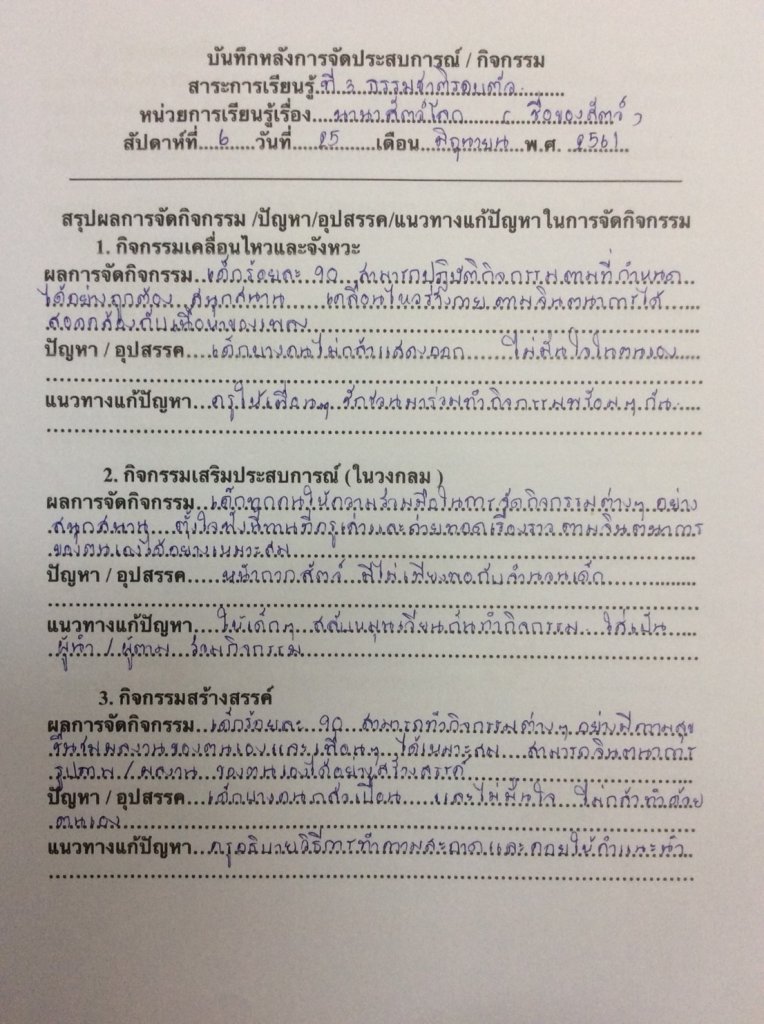 บันทึกหลังการจัดประสบการณ์ / กิจกรรม
สาระการเรียนรู้ ที่ 3 ธรรมชาติรอบตัว
หน่วยการเรียนรู้เรื่อง นานาสัตว์โลก ( ชื่อของสัตว์ )
สัปดาห์ที่ 6 วันที่ 25 เดือน มิถุนายน พ.ศ. 2561
สรุปผลการจัดกิจกรรม /ปัญหา/อุปสรรค/แนวทางแก้ปัญหาในการจัดกิจกรรม
1. กิจกรรมเคลื่อนไหวและจังหวะ
ผลการจัดกิจกรรม เด็กร้อยละ 90 สามารถปฏิบัติกิจกรรมตามที่กำหนด
ได้อย่างถูกต้อง สนุกสนาน เคลื่อนไหวร่างกายตามจินตนาการได้
สอดคล้องกับเนื้อหาของเพลง
ปัญหา / อุปสรรค เด็กบางคนไม่กล้าแสดงออก ไม่มั่นใจในตนเอง
แนวทางแก้ปัญหา ครูให้เพื่อนๆ ชักชวนมาร่วมทำกิจกรรมพร้อมๆ กัน
2. กิจกรรมเสริมประสบการณ์ ( ในวงกลม )
ผลการจัดกิจกรรม เด็กทุกคนให้ความร่วมมือในการจัดกิจกรรมต่างๆ อย่าง
สนุกสนาน ตั้งใจฟังนิทานที่ครูเล่าและถ่ายทอดเรื่องราวตามจินตนาการ
ของตนเองได้อย่างเหมาะสม
ปัญหา / อุปสรรค หน้ากากสัตว์ มีไม่เพียงพอกับจำนวนเด็ก
แนวทางแก้ปัญหา ให้เด็กๆ สลับหมุนเวียนกันทำกิจกรรม ได้เป็น
ผู้นำ / ผู้ตาม ร่วมกิจกรรม
3. กิจกรรมสร้างสรรค์
ผลการจัดกิจกรรม เด็กร้อยละ 90 สามารถทำกิจกรรมต่างๆ อย่างมีความสุข
ชื่นชมผลงานของตนเองและเพื่อนๆ ได้เหมาะสม สามารถจินตนาการ
รูปภาพ / ผลงาน ของตนเองได้อย่างสร้างสรรค์
ปัญหา / อุปสรรค เด็กบางคนกลัวเปื้อน และไม่มั่นใจ ไม่กล้าทำด้วย
ตนเอง
แนวทางแก้ปัญหา ครูอธิบายวิธีการทำความสะอาดและคอยให้คำแนะนำ